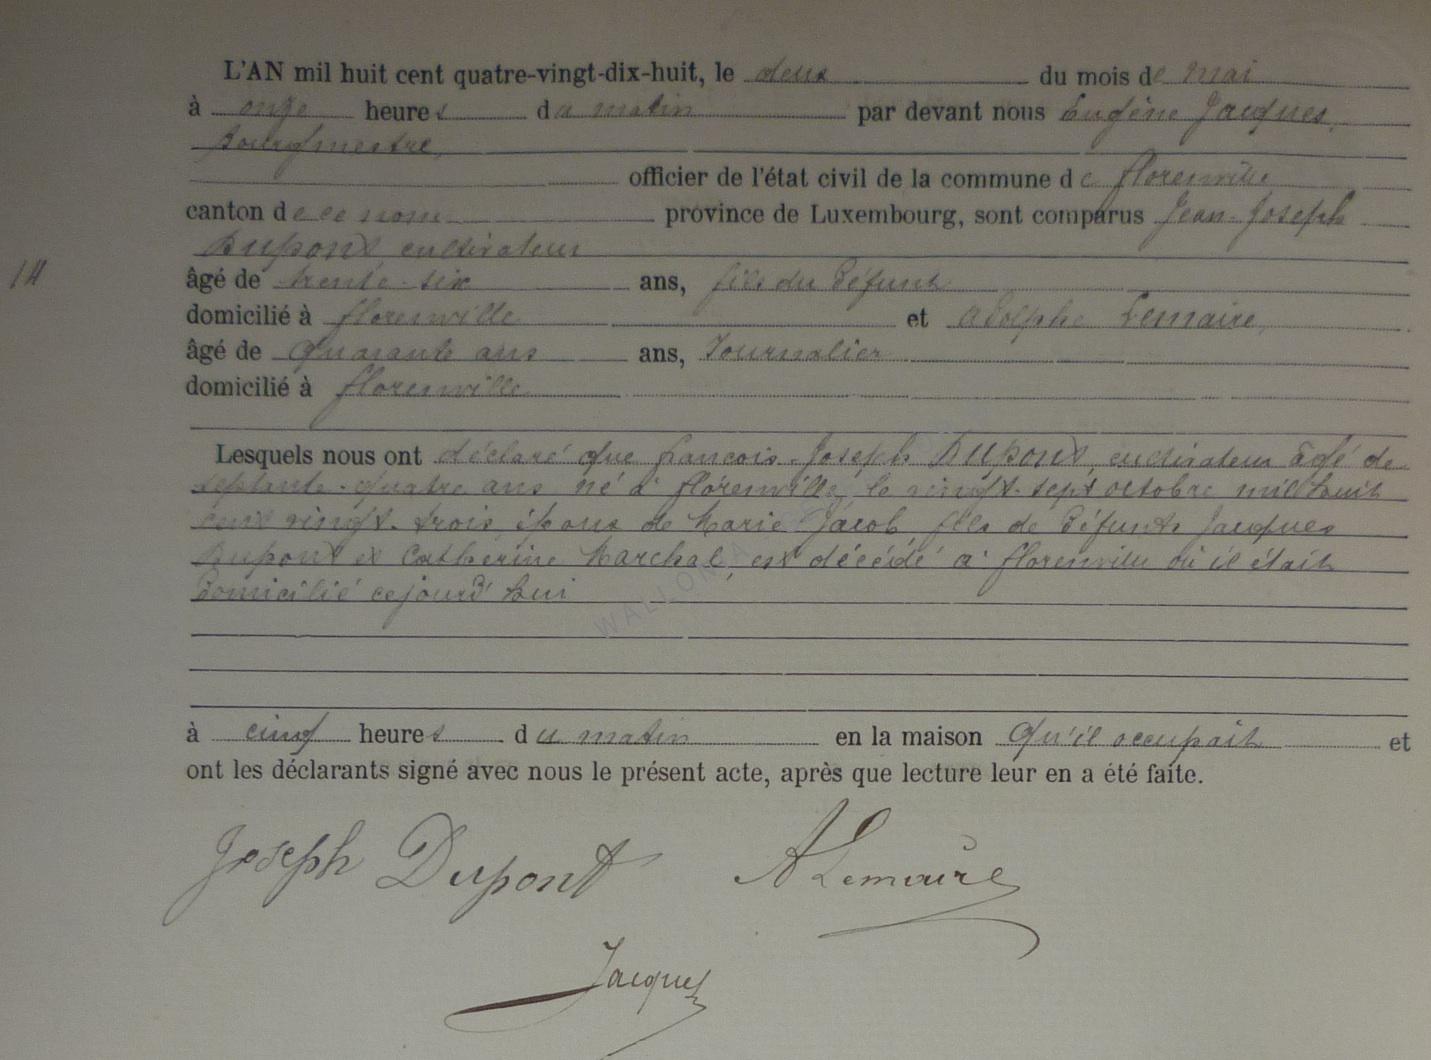 L'AN mil huit cent quatre-vingt-dix-huit, le deux du mois de mai
à onze heures du matin par devant nous Eugène Jacques,
Bourgmestre,
officier de l'état civil de la commune de florenville
canton de ce nom province de Luxembourg, sont comparus Jean-Joseph
Dupont, cultivateur
14
âgé de trente-six ans, fils du défunt
domicilié à florenville et Adolphe Lemaire,
âgé de quarante ans ans, Journalier
domicilié à florenville
Lesquels nous ont déclaré que francois-Joseph Dupont, cultivateur âgé de
septante-quatre ans, né à florenville, le vingt-sept octobre mil huit
cent vingt-trois époux de Marie Jacob fils de défunts Jacques
Dupont et Catherine Marchal, est décédé à florenville où il était
domicilié cejourd'hui
WALLONIA
à cinq heures du matin en la maison qu'il occupait et
ont les déclarants signé avec nous le présent acte, après que lecture leur en a été faite.
Joseph Dupont A Lemaire
Jacques